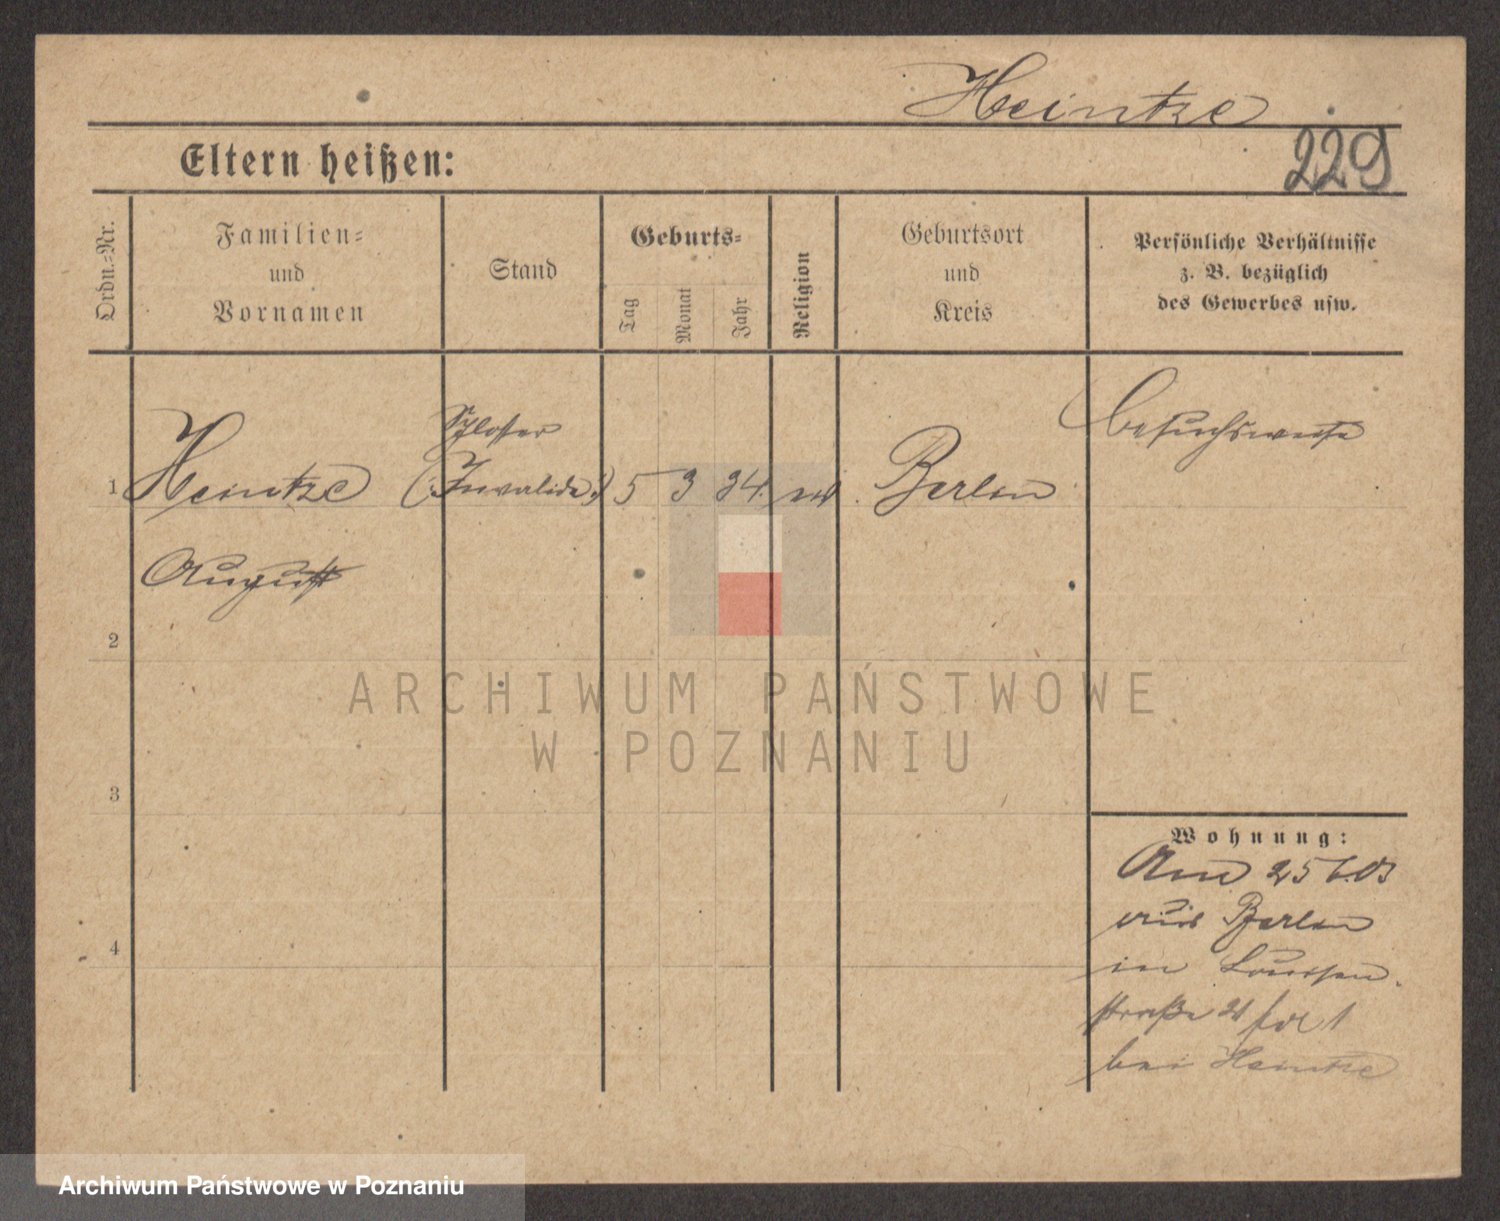 Heintze
Eltern heißen:
229
Ordn.=Nr.
Familien=
und
Vornamen
Stand
Geburts=
Tag
Monat
Jahr
Religion
Geburtsort
und
Kreis
Persönliche Verhältnisse
z. B. bezüglich
des Gewerbes usw.
Schlosser
besuchsweise
1 Heintze (Invalide) 5 3 34. Berlin
August
2
3
4
Wohnung:
Am 25 6.03
aus Berlin
in Louisen
straße 21
bei Heintze
ARCHIWUM PAŃSTWOWE
W POZNANIU
Archiwum Państwowe w Poznaniu